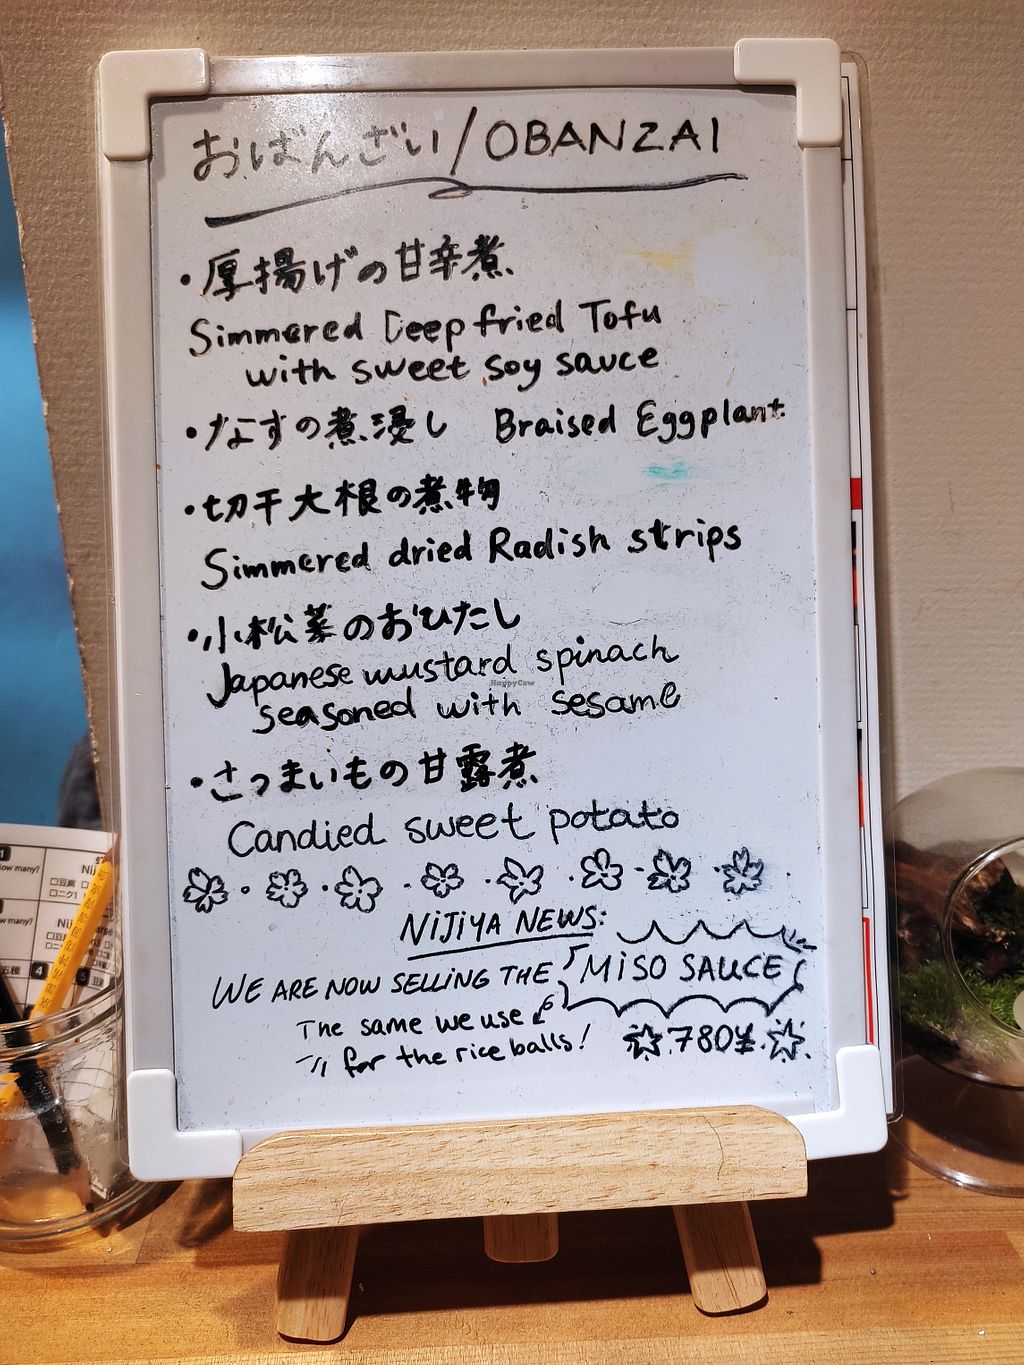 おばんざい/OBANZAI
・厚揚げの甘辛煮
Simmered Deep fried Tofu
with sweet soy sauce
・なすの煮浸し Braised Eggplant
・切干大根の煮物
Simmered dried Radish strips
・小松菜のおひたし
Japanese mustard spinach
HappyCow
seasoned with sesame
・さつまいもの甘露煮
Candied sweet potato
NIJIYA NEWS:
WE ARE NOW SELLING THE MISO SAUCE
The same we use
for the rice balls! 780¥